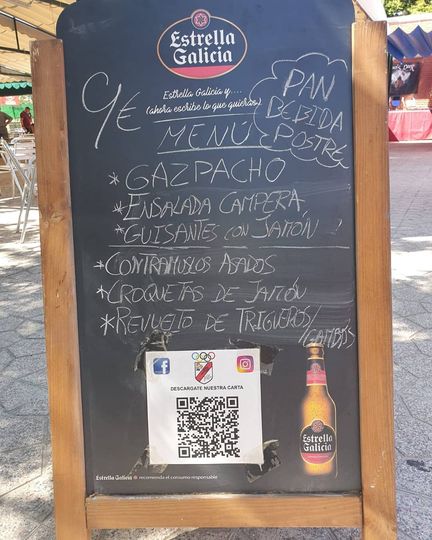 Estrella
Galicia
Estrella Galicia y....
(ahora escribe lo que quieras).
9€
MENÚ
PAN
BEBIDA
POSTRE
*GAZPACHO
*ENSALADA CAMPERA
*GUISANTES CON JAMÓN
*CONTRAMUSLOS ASADOS
*CROQUETAS DE JAMÓN
*REVUELTO DE TRIGUEROS/GAMBAS
DESCARGATE NUESTRA CARTA
Estrella
Galicia
Estrella Galicia recomienda el consumo responsable